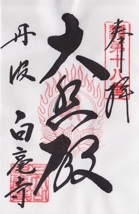 奉拝
大悲殿
丹波
白毫寺